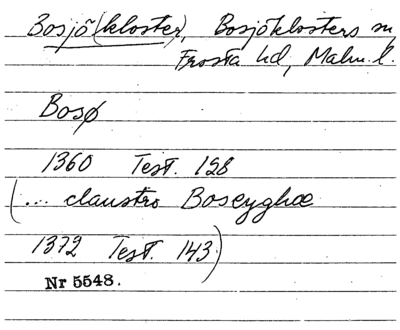 Bosjö(kloster), Bosjöklosters sn,
Frosta hd, Malm. l.
Bosø
1360 Test. 128
(... claustro Boseyghæ
1372 Test. 143)
Nr 5548.